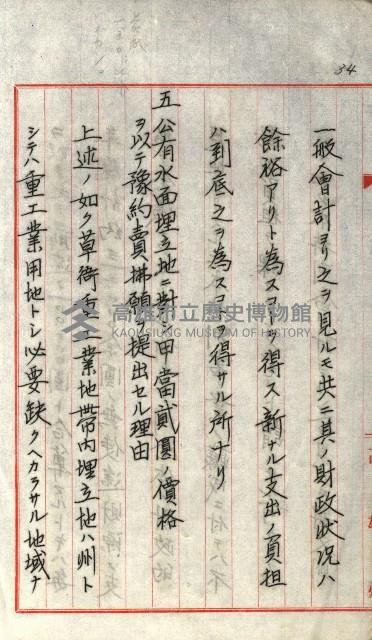 34
一般會計ヨリ之ヲ見ルモ共ニ其ノ財政狀況ハ
餘裕アリト為スコトヲ得ス新ナル支出ノ負担
ハ到底之ヲ為スコトヲ得サル所ナリ
五 公有水面埋立地ニ對甲當貳圓ノ價格
ヲ以テ豫約賣拂願ヲ提出セル理由
上述ノ如ク草衙重工業地帶內埋立地ハ州ト
シテハ重工業用地トシ必要缺クヘカラサル地域ナ
高雄市立歷史博物館
KAOHSIUNG MUSEUM OF HISTORY